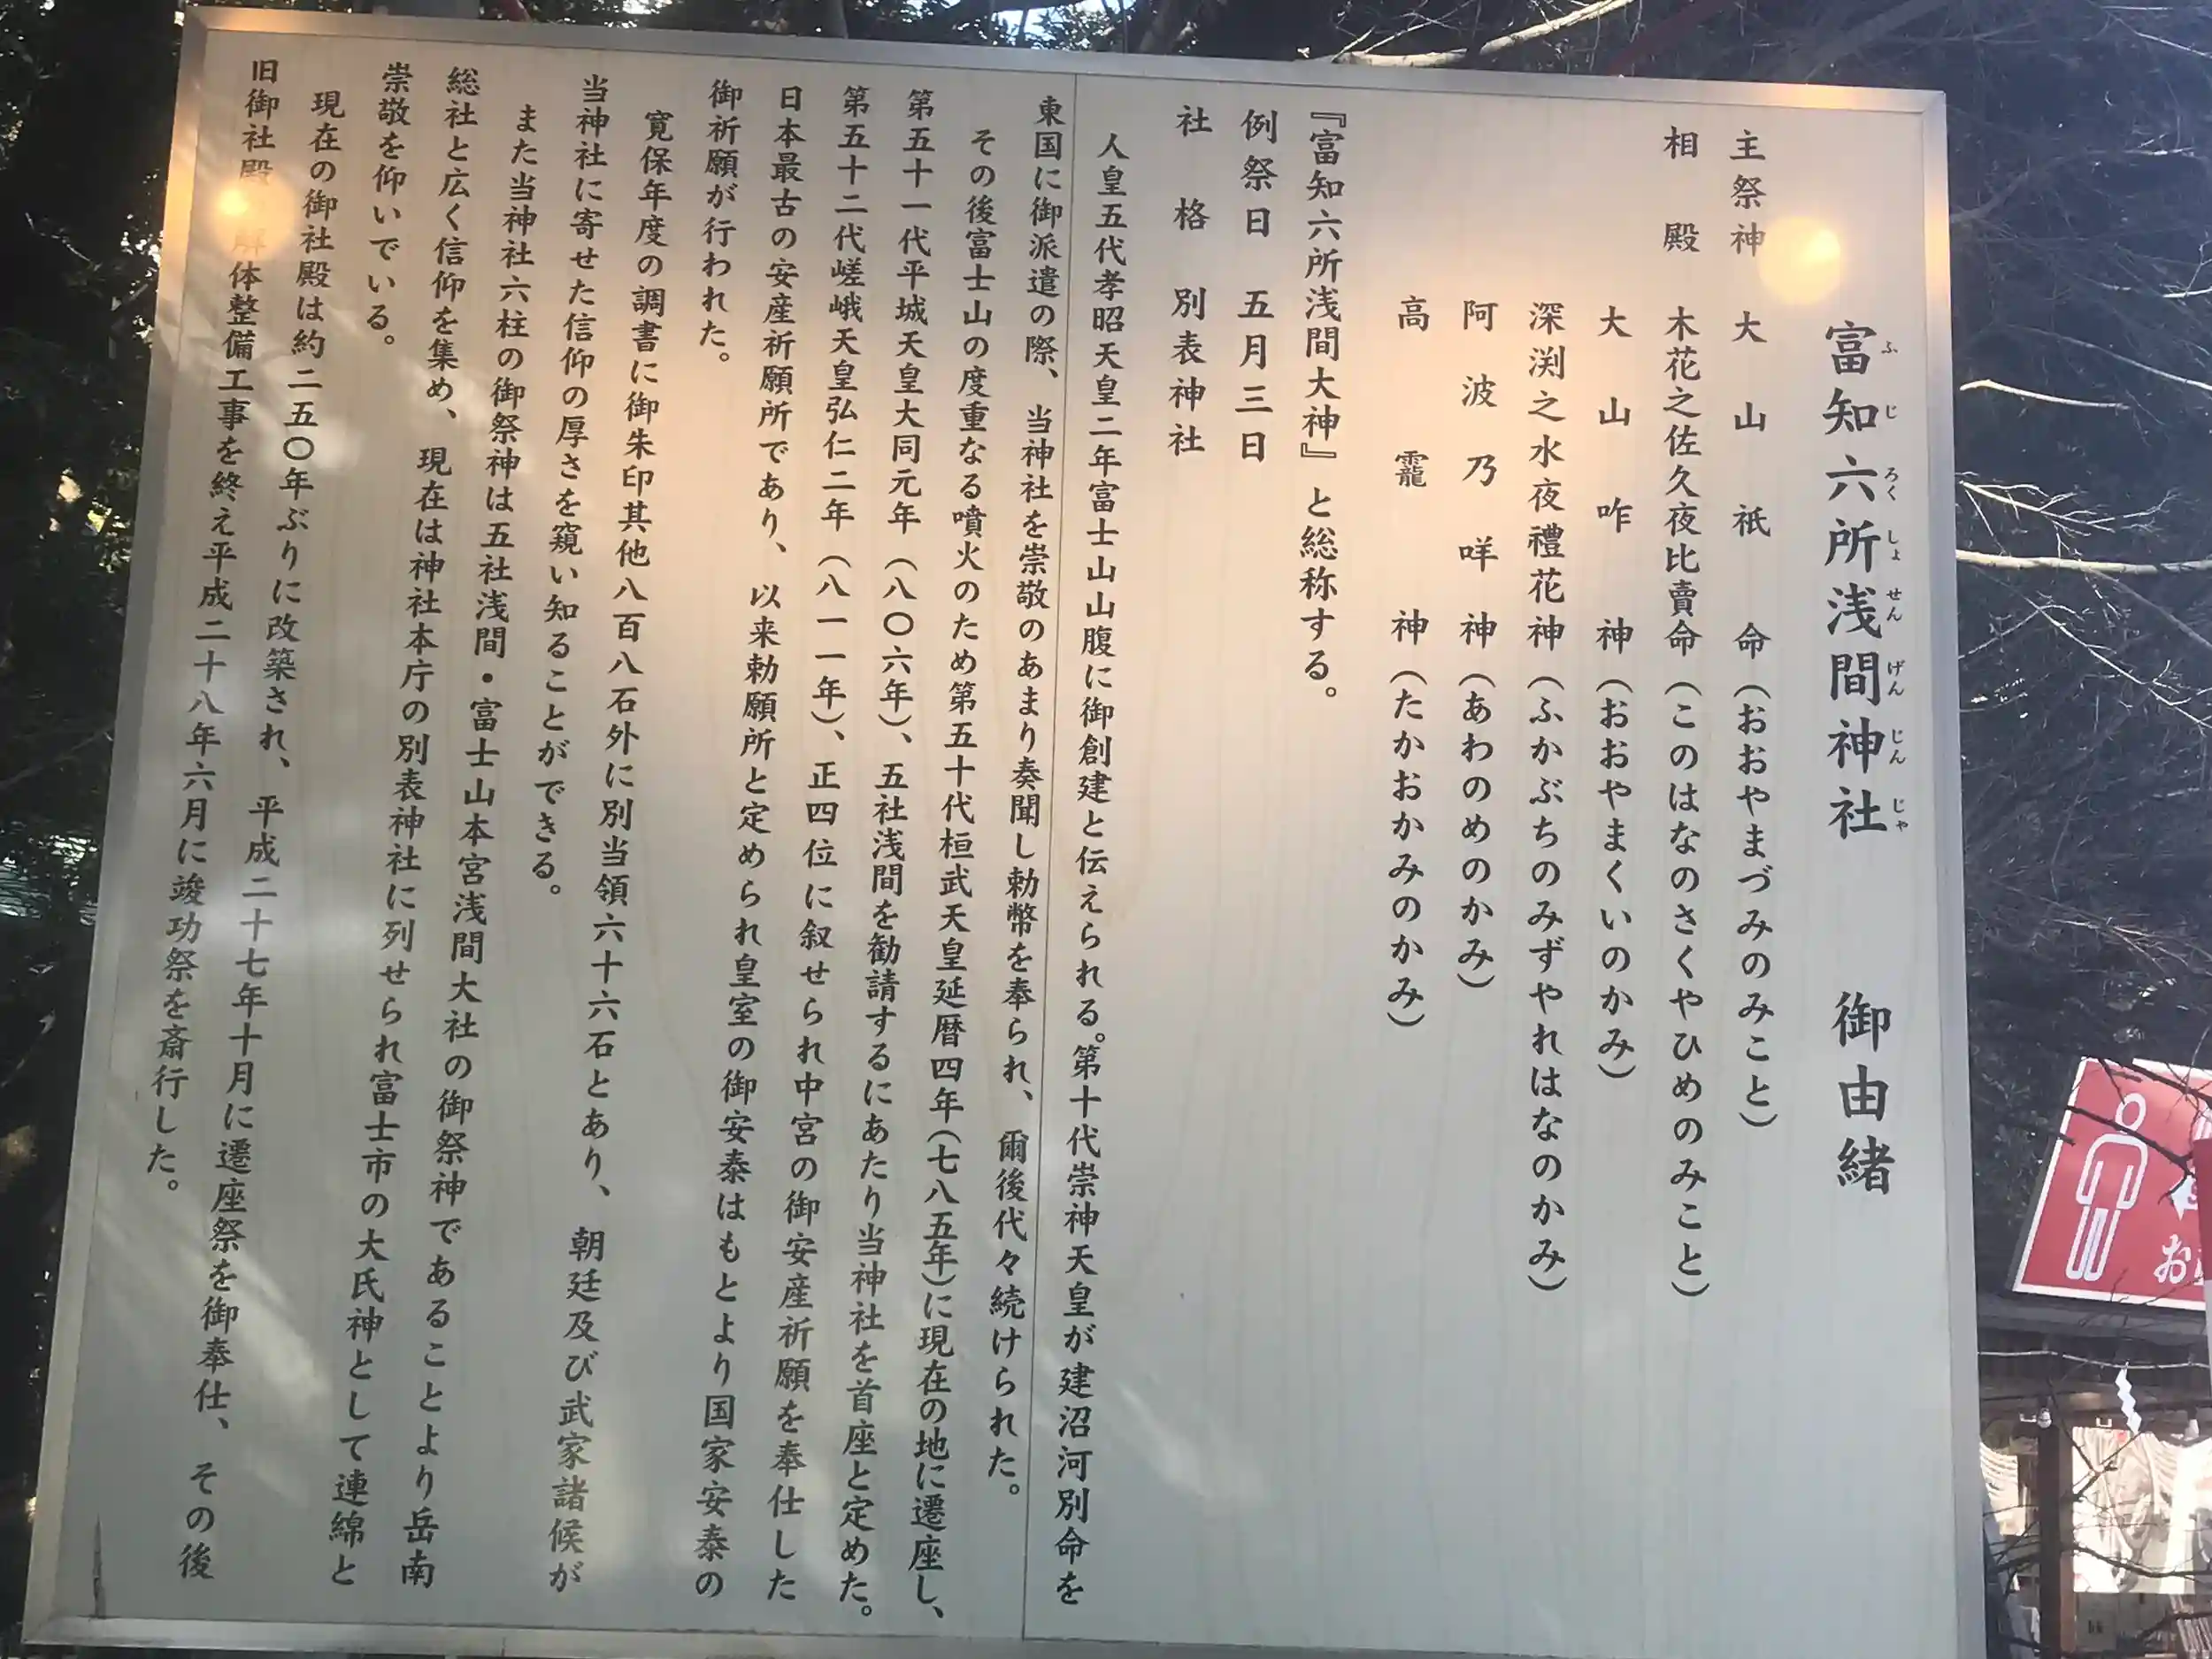 富知六所浅間神社 御由緒
ふじろくしょせんげんじんじゃ
主祭神 大山祇命（おおやまづみのみこと）
相殿 木花之佐久夜比賣命（このはなのさくやひめのみこと）
大山咋神（おおやまくいのかみ）
深渕之水夜禮花神（ふかぶちのみずやれはなのかみ）
阿波乃咩神（あわのめのかみ）
高龗神（たかおかみのかみ）
『富知六所浅間大神』と総称する。
例祭日 五月三日
社格 別表神社
人皇五代孝昭天皇二年富士山山腹に御創建と伝えられる。第十代崇神天皇が建沼河別命を
東国に御派遣の際、当神社を崇敬のあまり奏聞し勅幣を奉られ、爾後代々続けられた。
その後富士山の度重なる噴火のため第五十代桓武天皇延暦四年（七八五年）に現在の地に遷座し、
第五十一代平城天皇大同元年（八〇六年）、五社浅間を勧請するにあたり当神社を首座と定めた。
第五十二代嵯峨天皇弘仁二年（八一一年）、正四位に叙せられ中宮の御安産祈願を奉仕した
日本最古の安産祈願所であり、以来勅願所と定められ皇室の御安泰はもとより国家安泰の
御祈願が行われた。
寛保年度の調書に御朱印其他八百八石外に別当領六十六石とあり、朝廷及び武家諸候が
当神社に寄せた信仰の厚さを窺い知ることができる。
また当神社六柱の御祭神は五社浅間・富士山本宮浅間大社の御祭神であることより岳南
総社と広く信仰を集め、現在は神社本庁の別表神社に列せられ富士市の大氏神として連綿と
崇敬を仰いでいる。
現在の御社殿は約二五〇年ぶりに改築され、平成二十七年十月に遷座祭を御奉仕、その後
旧御社殿解体整備工事を終え平成二十八年六月に竣功祭を斎行した。
お